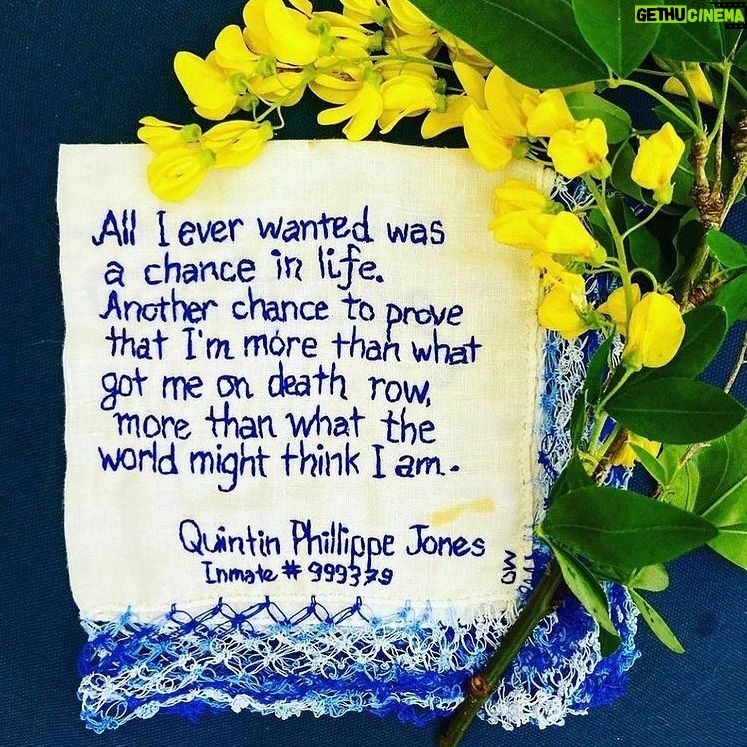 GETHUCINEMA
All I ever wanted was
a chance in life.
Another chance to prove
that I'm more than what
got me on death row,
more than what the
world might think I am.
Quintin Phillippe Jones
Inmate # 999379